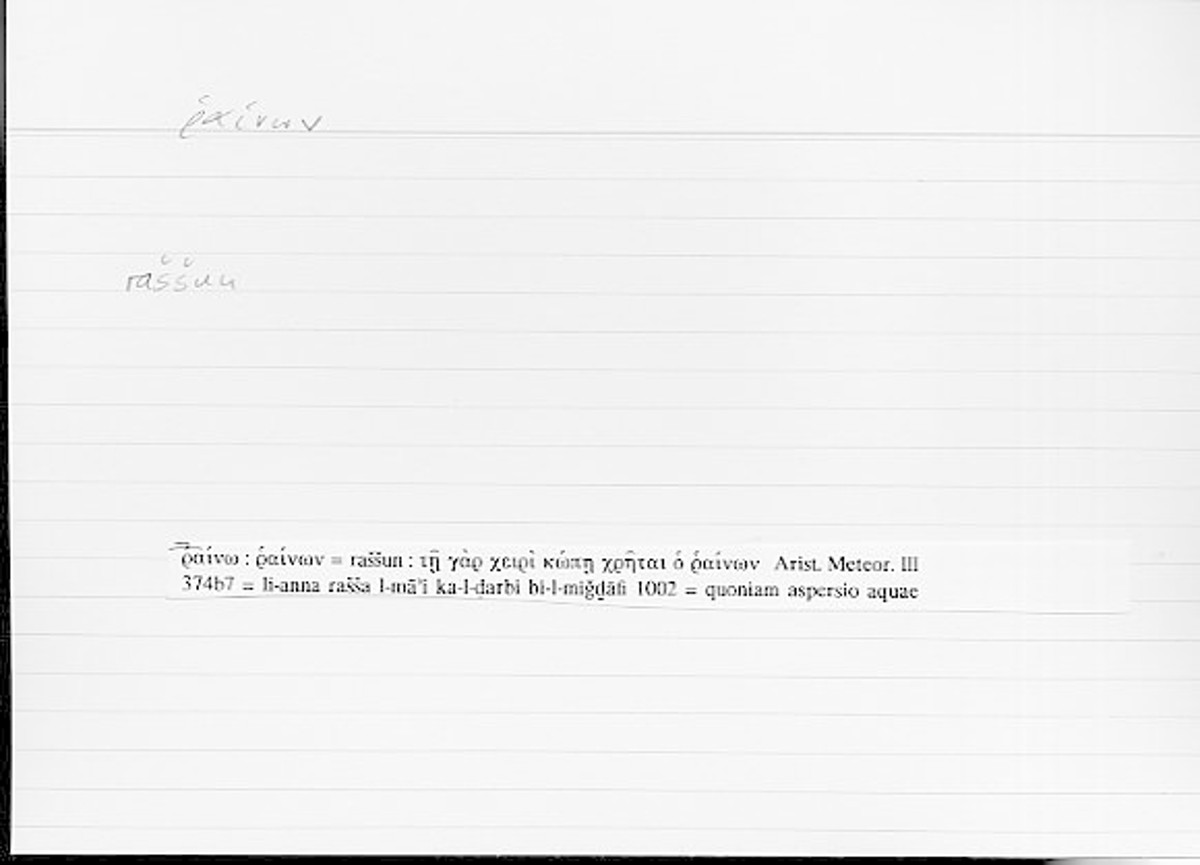 ῥαίνων
raššun
ῥαίνω : ῥαίνων = raššun : τῇ γὰρ χειρὶ κώπῃ χρῆται ὁ ῥαίνων Arist. Meteor. III
374b7 = li-anna rašša l-mā'i ka-l-ḍarbi bi-l-miǧḏāfi 1002 = quoniam aspersio aquae